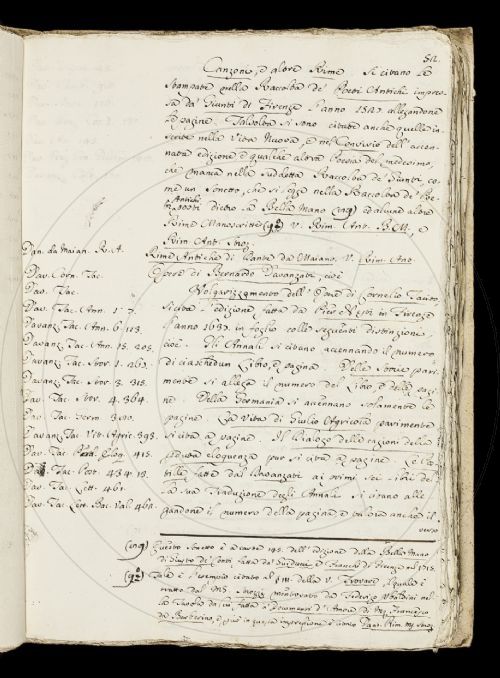 512.
Canzoni, e altre Rime. Si citano le
Stampate nella Raccolta de' Poeti Antichi impres-
sa da' Giunti di Firenze l'anno 1527. allegandone
le pagine. Talvolta si sono citate anche quelle in-
serite nella Vita Nuova, e nel Convivio dell' accen-
nata edizione, e qualche altra Poesia del medesimo,
che manca nella suddetta Raccolta de' Giunti, co-
me un Sonetto, che si legge nella Raccolta de' Poe-
ti Antichi dietro la Bella Mano ed alcune altre
Rime Manoscritte V. Rim. Ant. B. M., e
Rim. Ant.
Dan. da Maian. R. A.
Rime Antiche di Dante da Maiano. V. Rim. Ant.
Dav. Corn. Tac.
Opere di Bernardo Davanzati, cioè
Dav. Tac.
Volgarizzamento dell' Opere di Cornelio Tacito.
Dav. Tac. Ann. 1. 7.
Si cita l'edizione fatta da Pier Nesti in Firenze
Davanz. Tac. Ann. 6. 113.
l'anno 1637. in foglio colle seguenti distinzioni
Davanz. Tac. Ann. 15. 205.
cioè. Gli Annali si citano accennando il numero
Davanz. Tac. Stor. 1. 261.
di ciaschedun Libro, e pagina. Delle Storie pari-
Davanz. Tac. Stor. 3. 315.
mente si allega il numero del Libro, e della pagi-
Dav. Tac. Stor. 4. 364.
ne. Della Germania si accennano solamente le
Dav. Tac. Germ. 370.
pagine. La Vita di Giulio Agricola parimente
Davanz. Tac. Vit. Agric. 393.
si cita a pagine. Il Dialogo delle cagioni della
Dav. Tac. Perd. Eloq. 415.
perduta eloquenza pur si cita a pagine. Le
Dav. Tac. Post. 434. 13.
fatte dal Davanzati ai primi sei libri del-
Dav. Tac. Lett. 461.
la sua Traduzione degli Annali si citano alle-
Dav. Tac. Lett. Bac. Val. 462.
gandone il numero della pagina e talora anche il
verso
Questo Sonetto è a carte 145. dell' edizione della Bella Mano
di Giusto de' Conti fatta da' Guiducci, e Franchi di Firenze nel 1715.
Tale è l'esempio citato al § III. della V. Trovare, il quale è
tratto dal MS. mentovato da Federigo Ubaldini nel-
la Tavola da lui fatta a' Documenti d'Amore di M. Francesco
da Barberino, e può in questa impressione è citato Dant. Rim.